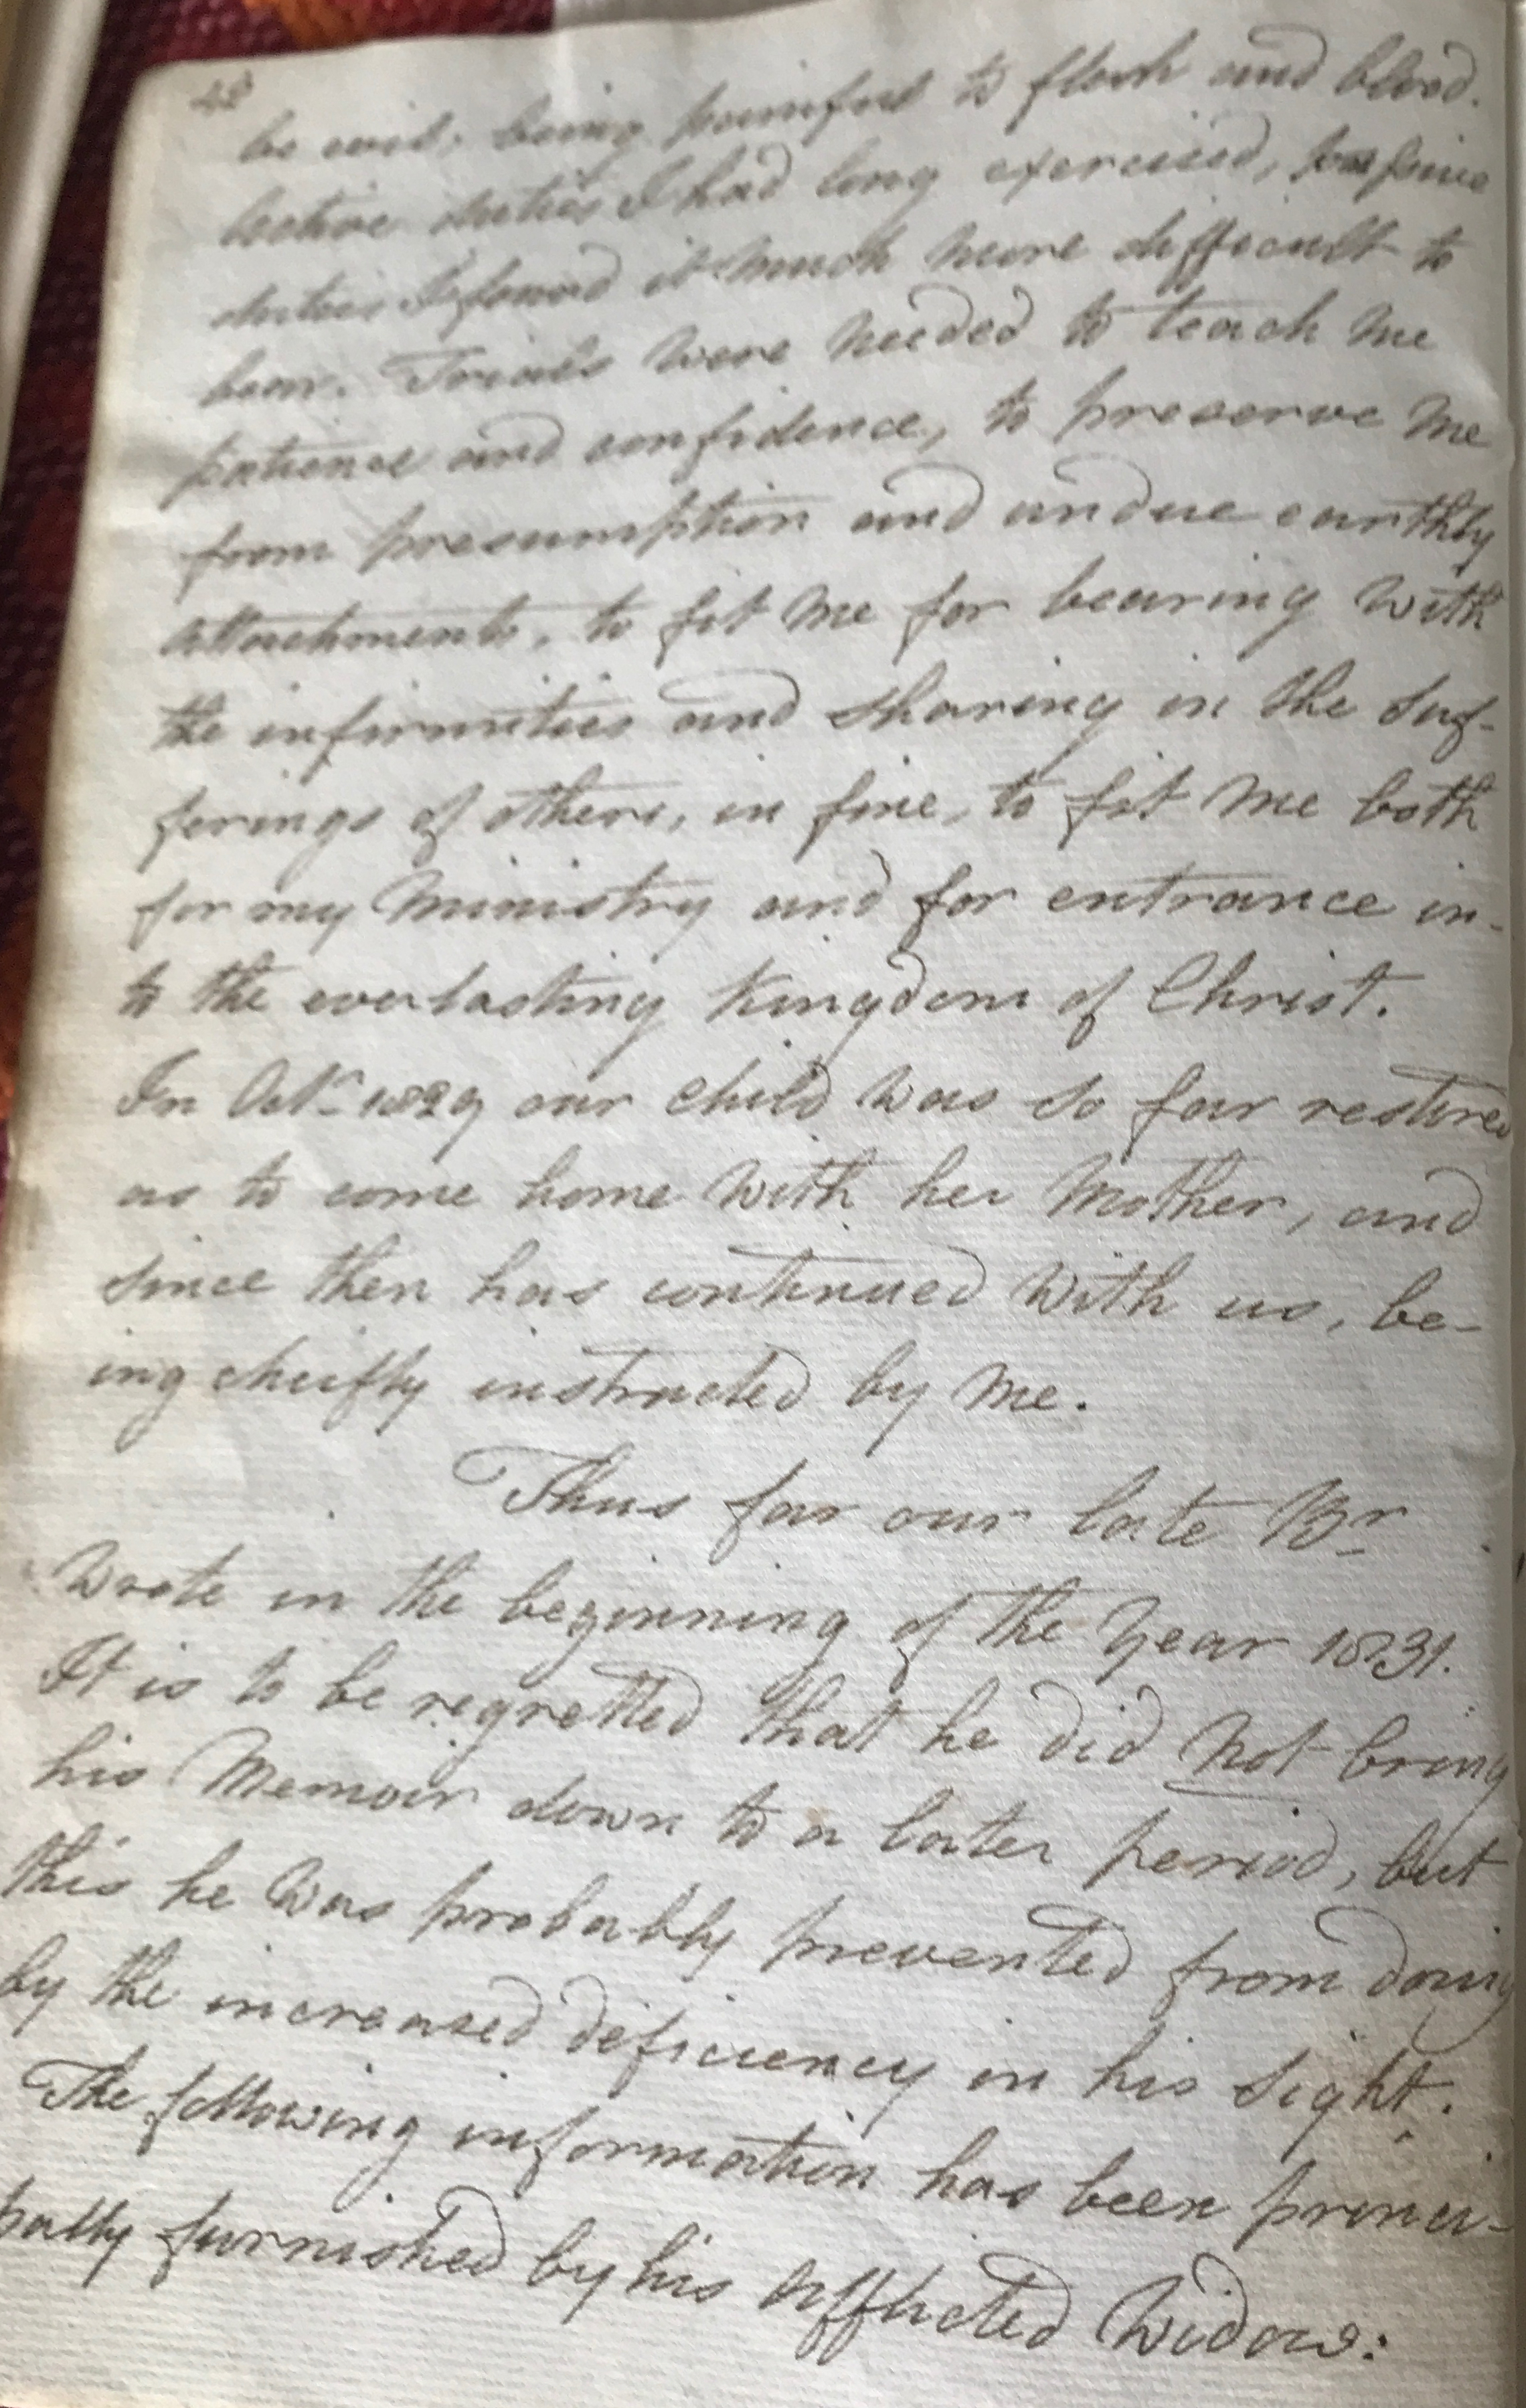 be evil, being painful to flesh and blood.
lective duties I had long exercised,
duties I found it much more difficult to
bear. Trials were needed to teach me
patience and confidence, to preserve me
from presumption and undue earthly
attachments, to fit me for bearing with
the infirmities and sharing in the suf-
ferings of others, in fine, to fit me both
for my Ministry and for entrance in-
to the everlasting Kingdom of Christ.
In Octr. 1829 our child was so far restored
as to come home with her Mother, and
since then has continued with us, be-
ing cheifly instructed by me.
Thus far our late Br
wrote in the beginning of the Year 1831.
It is to be regretted that he did not bring
his Memoir down to a later period, but
this he was probably prevented from doing
by the increased deficiency in his sight.
The following information has been princi-
pally furnished by his afflicted Widow: